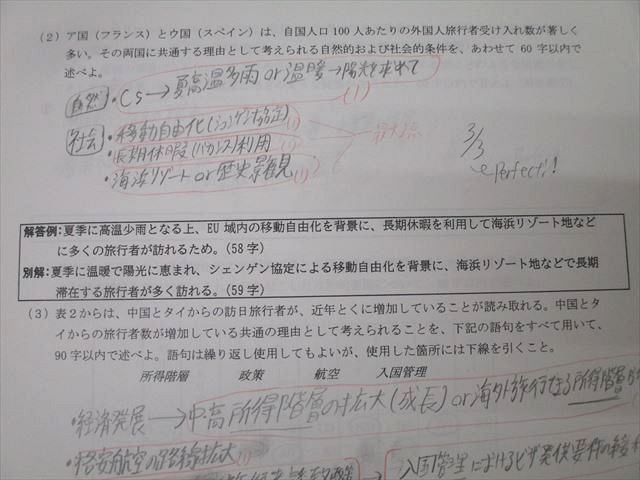 (2) ア国（フランス）とウ国（スペイン）は、自国人口100人あたりの外国人旅行者受け入れ数が著しく
多い。その両国に共通する理由として考えられる自然的および社会的条件を、あわせて60字以内で
述べよ。
自然 ・Cs→夏高温多雨or温暖→陽光を求めて
(1)
社会 ・移動自由化(シェンゲン協定)
(1)
・長期休暇(バカンス)利用
(1)
・海浜リゾートor歴史景観
(1)
3/3
Perfect!!
解答例：夏季に高温少雨となる上、EU域内の移動自由化を背景に、長期休暇を利用して海浜リゾート地など
に多くの旅行者が訪れるため。（58字）
別解：夏季に温暖で陽光に恵まれ、シェンゲン協定による移動自由化を背景に、海浜リゾート地などで長期
滞在する旅行者が多く訪れる。（59字）
(3) 表2からは、中国とタイからの訪日旅行者が、近年とくに増加していることが読み取れる。中国とタ
イからの旅行者数が増加している共通の理由として考えられることを、下記の語句をすべて用いて、
90字以内で述べよ。語句は繰り返し使用してもよいが、使用した箇所には下線を引くこと。
所得階層 政策 航空 入国管理
・経済発展→中高所得階層の拡大(成長)or海外旅行する所得階層
・格安航空の路線拡大
(1)
入国管理におけるビザ要件の緩和